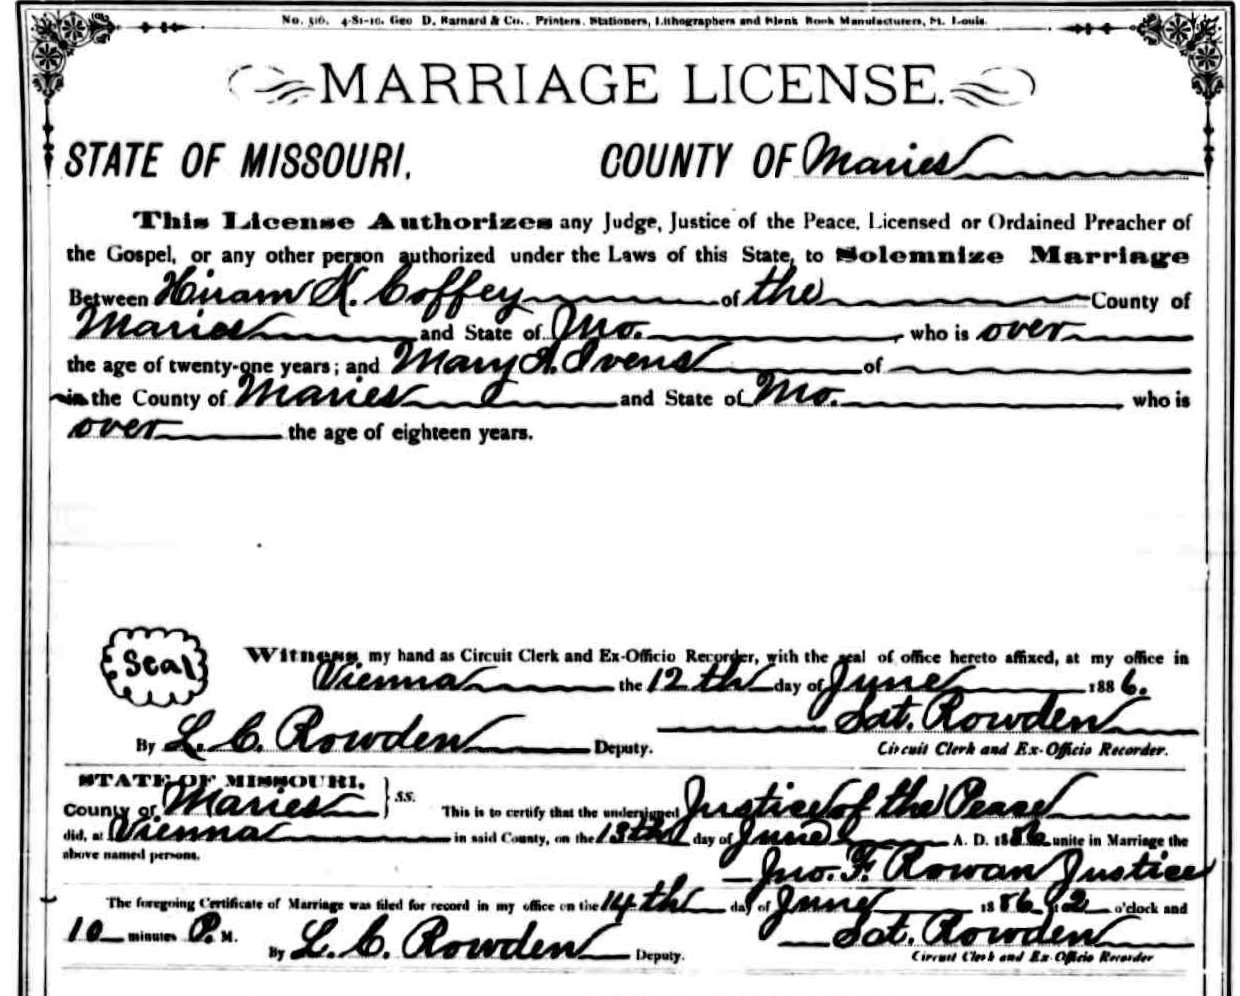 No. 516. 4-81-10. Geo D. Barnard & Co., Printers, Stationers, Lithographers and Blank Book Manufacturers, St. Louis.
MARRIAGE LICENSE.
STATE OF MISSOURI, COUNTY OF Maries
This License Authorizes any Judge, Justice of the Peace, Licensed or Ordained Preacher of
the Gospel, or any other person authorized under the Laws of this State, to Solemnize Marriage
Between Hiram K. Coffey of the County of
Maries and State of Mo. , who is over
the age of twenty-one years; and Mary A. Ivens of
in the County of Maries and State of Mo. who is
over the age of eighteen years.
Seal
Witness my hand as Circuit Clerk and Ex-Officio Recorder, with the seal of office hereto affixed, at my office in
Vienna the 12th day of June 1886.
Sat. Rowden
By L. C. Rowden Deputy. Circuit Clerk and Ex-Officio Recorder.
STATE OF MISSOURI,
County of Maries } SS. This is to certify that the undersigned Justice of the Peace
did, at Vienna in said County, on the 13th day of June A. D. 1886 unite in Marriage the
above named persons.
Jno. F. Rowan Justice
The foregoing Certificate of Marriage was filed for record in my office on the 14th day of June 1886 at 2 o'clock and
10 minutes P. M. Sat. Rowden
By L. C. Rowden Deputy. Circuit Clerk and Ex-Officio Recorder